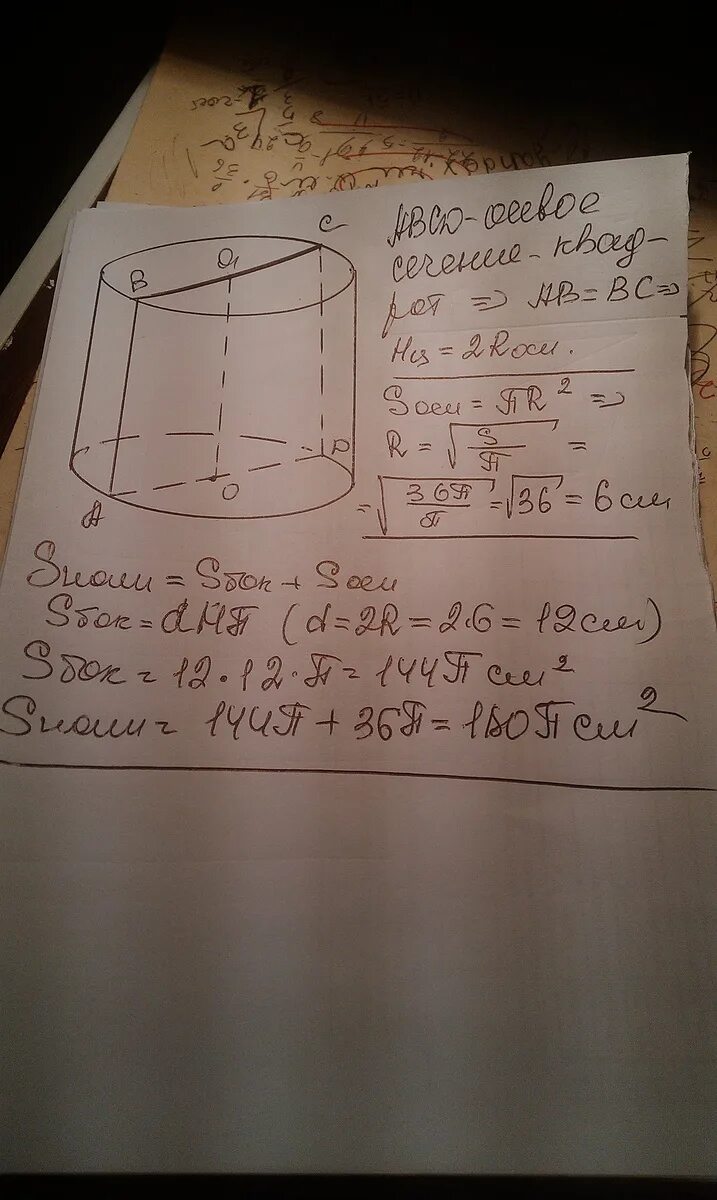 C
B
O₁
A
O
D
ABCD - осевое
сечение - квад-
рат => AB = BC =>
Hц = 2Rосн.
Sосн = ПR² =>
R = √(S/П) =
= √(36П/П) = √36 = 6 см
Sполн = Sбок + Sосн
Sбок = dHП (d = 2R = 2·6 = 12 см)
Sбок = 12·12·П = 144П см²
Sполн = 144П + 36П = 180П см²